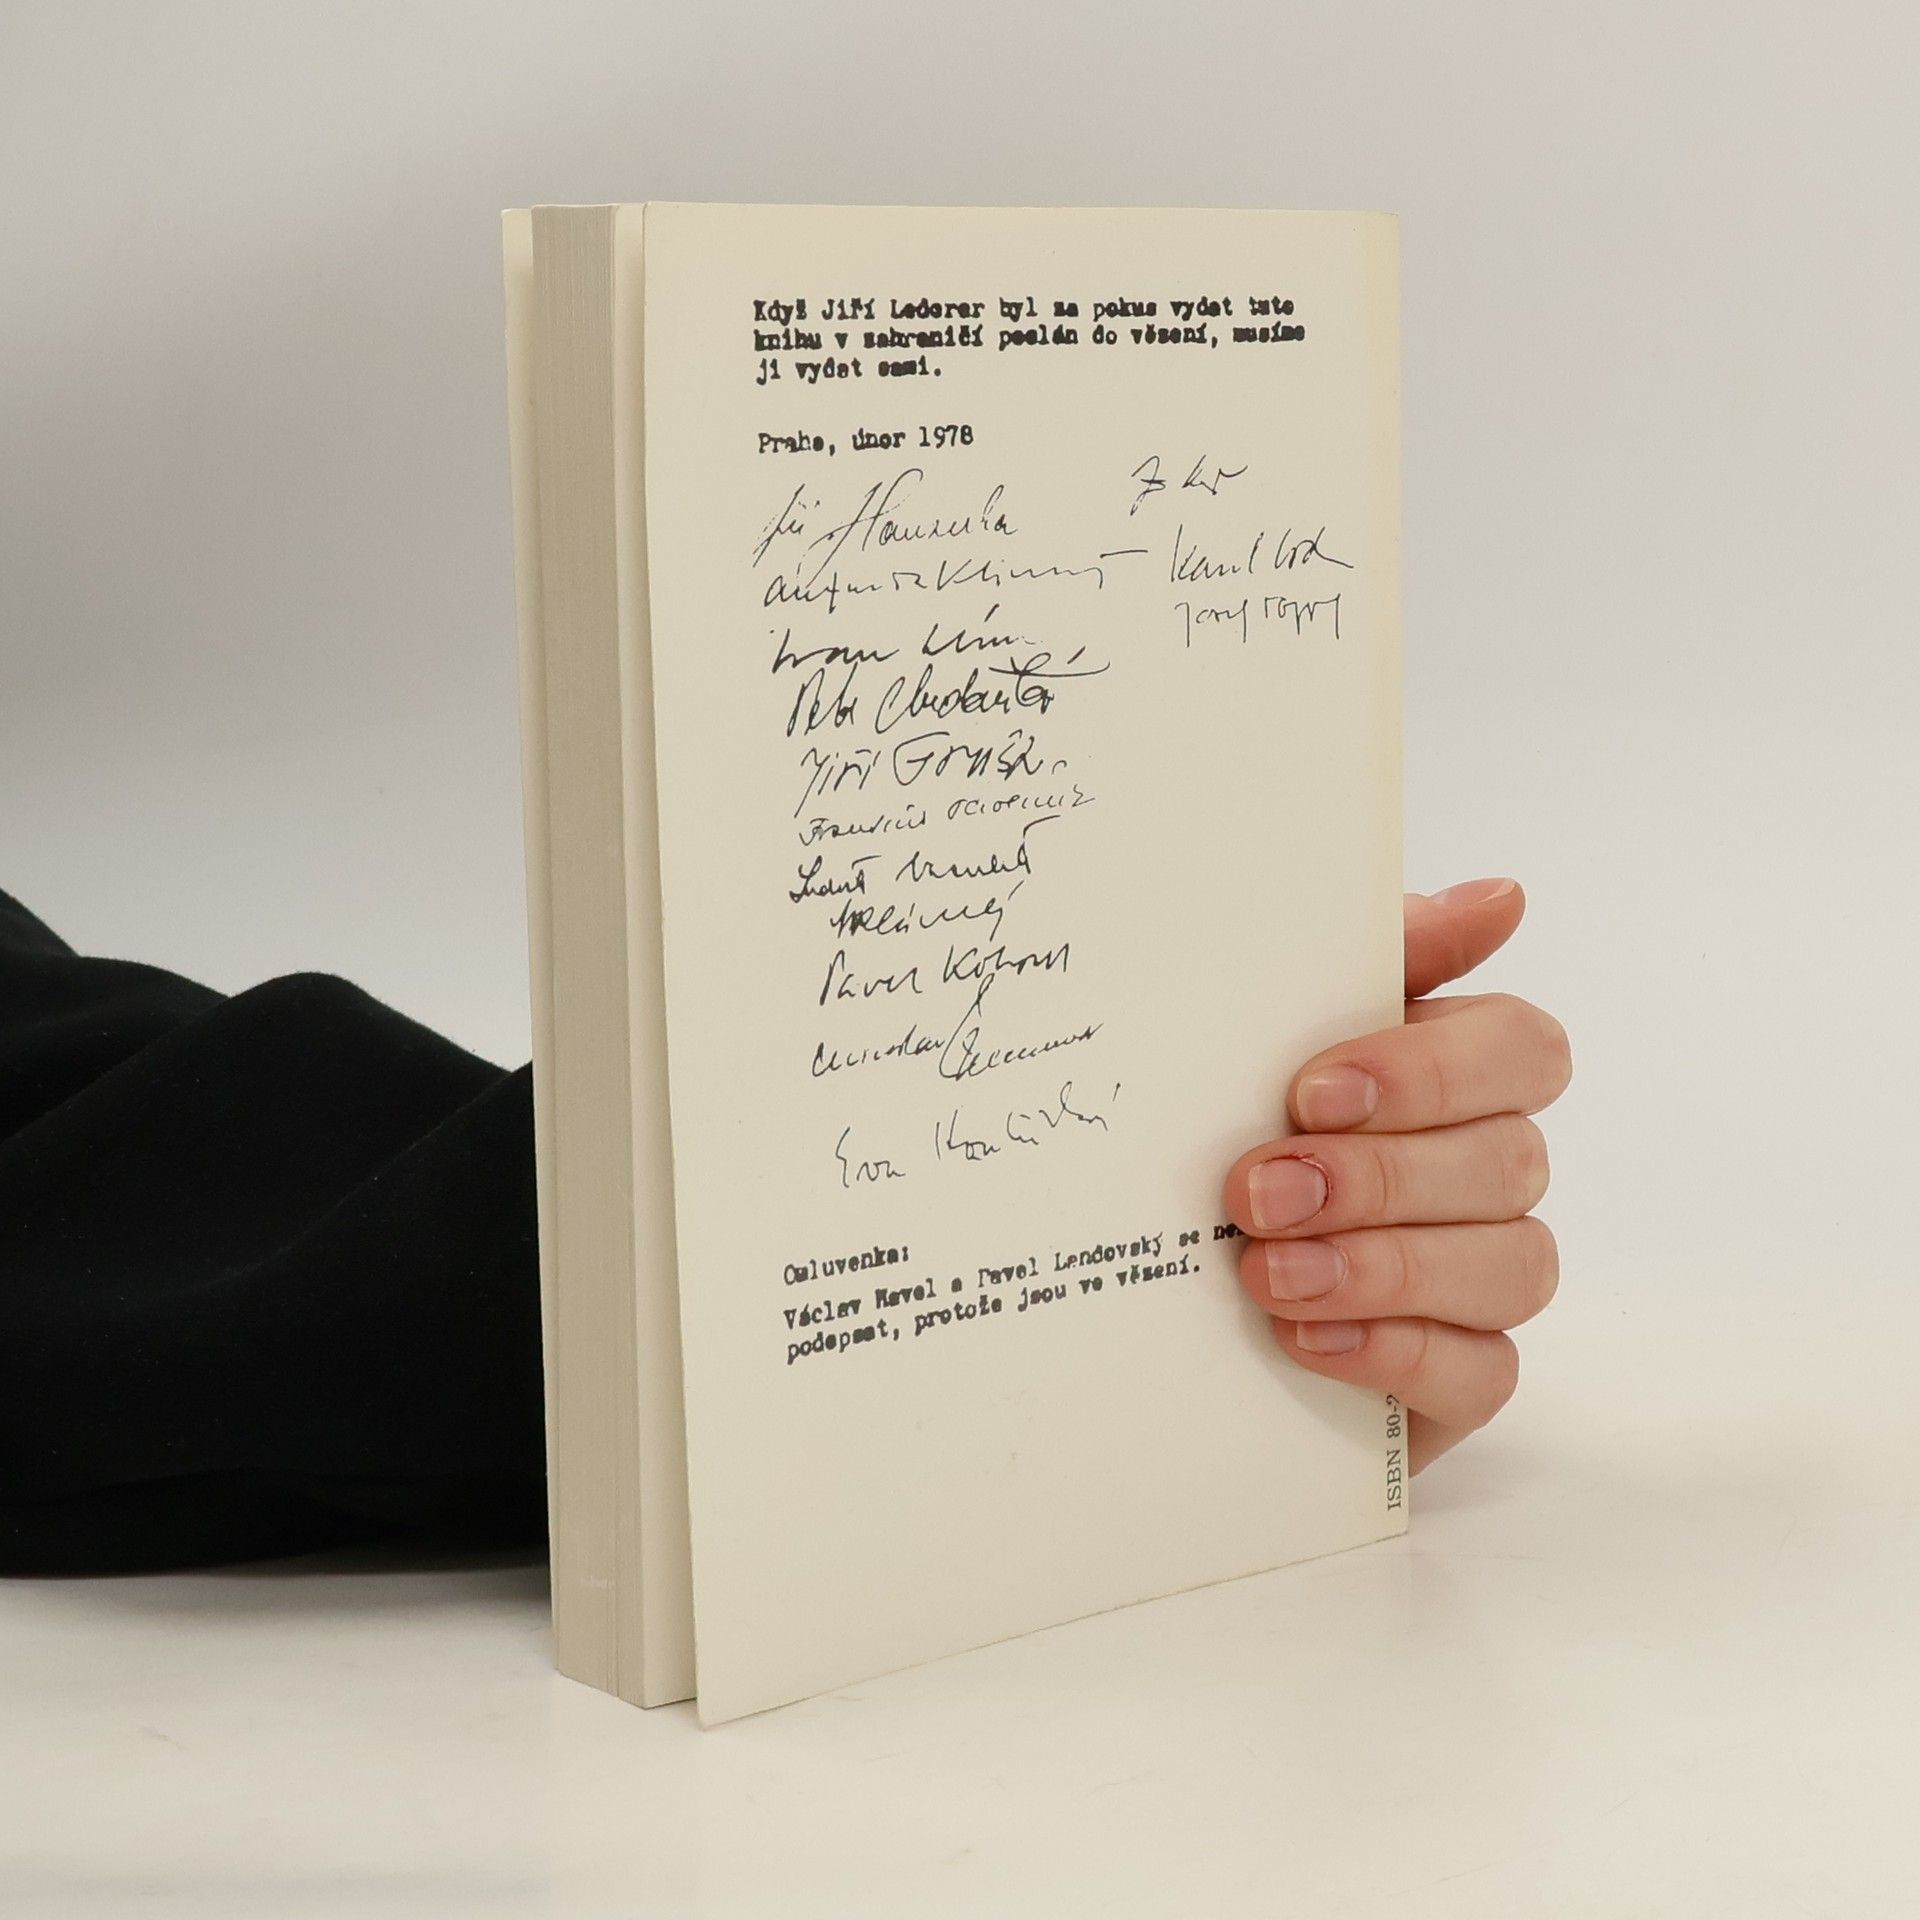 Když Jiří Lederer byl za pokus vydat tuto
knihu v zahraničí poslán do vězení, musíme
ji vydat sami.
Praha, únor 1978
Jiří Hanzelka
Ivan Klíma
Petr Chudožilov
Jiří Gruša
František Pavlíček
Ludvík Vaculík
Pavel Kohout
Eva Kantůrková
Karol Sidon
Josef Topol
Omluvenka:
Václav Havel a Pavel Landovský se
podepsat, protože jsou ve vězení.
ISBN 80-2